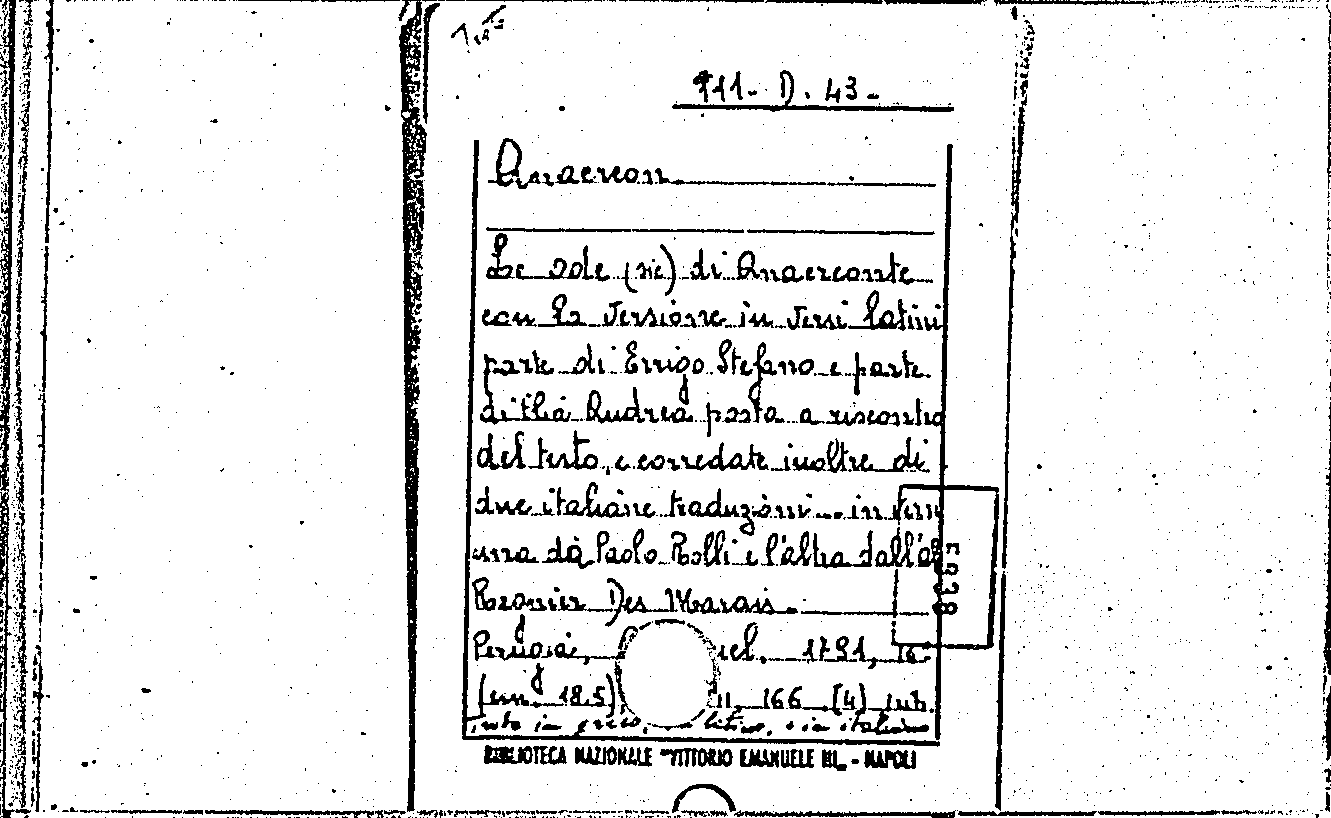 711- D. 43-
Anacreon
Le ode (sic) di Anacreonte
con la versione in versi latini
parte di Errigo Stefano e parte
di Elia Andrea posta a riscontro
del testo, e corredate inoltre di
due italiane traduzioni... in versi
una da Paolo Rolli e l'altra dall'ab
Regnier Des Marais.
Perugia, uel, 1791,
(cm. 18.5) 166 [4] inb.
testo in greco, latino, e in italiano
BIBLIOTECA NAZIONALE "VITTORIO EMANUELE III" - NAPOLI